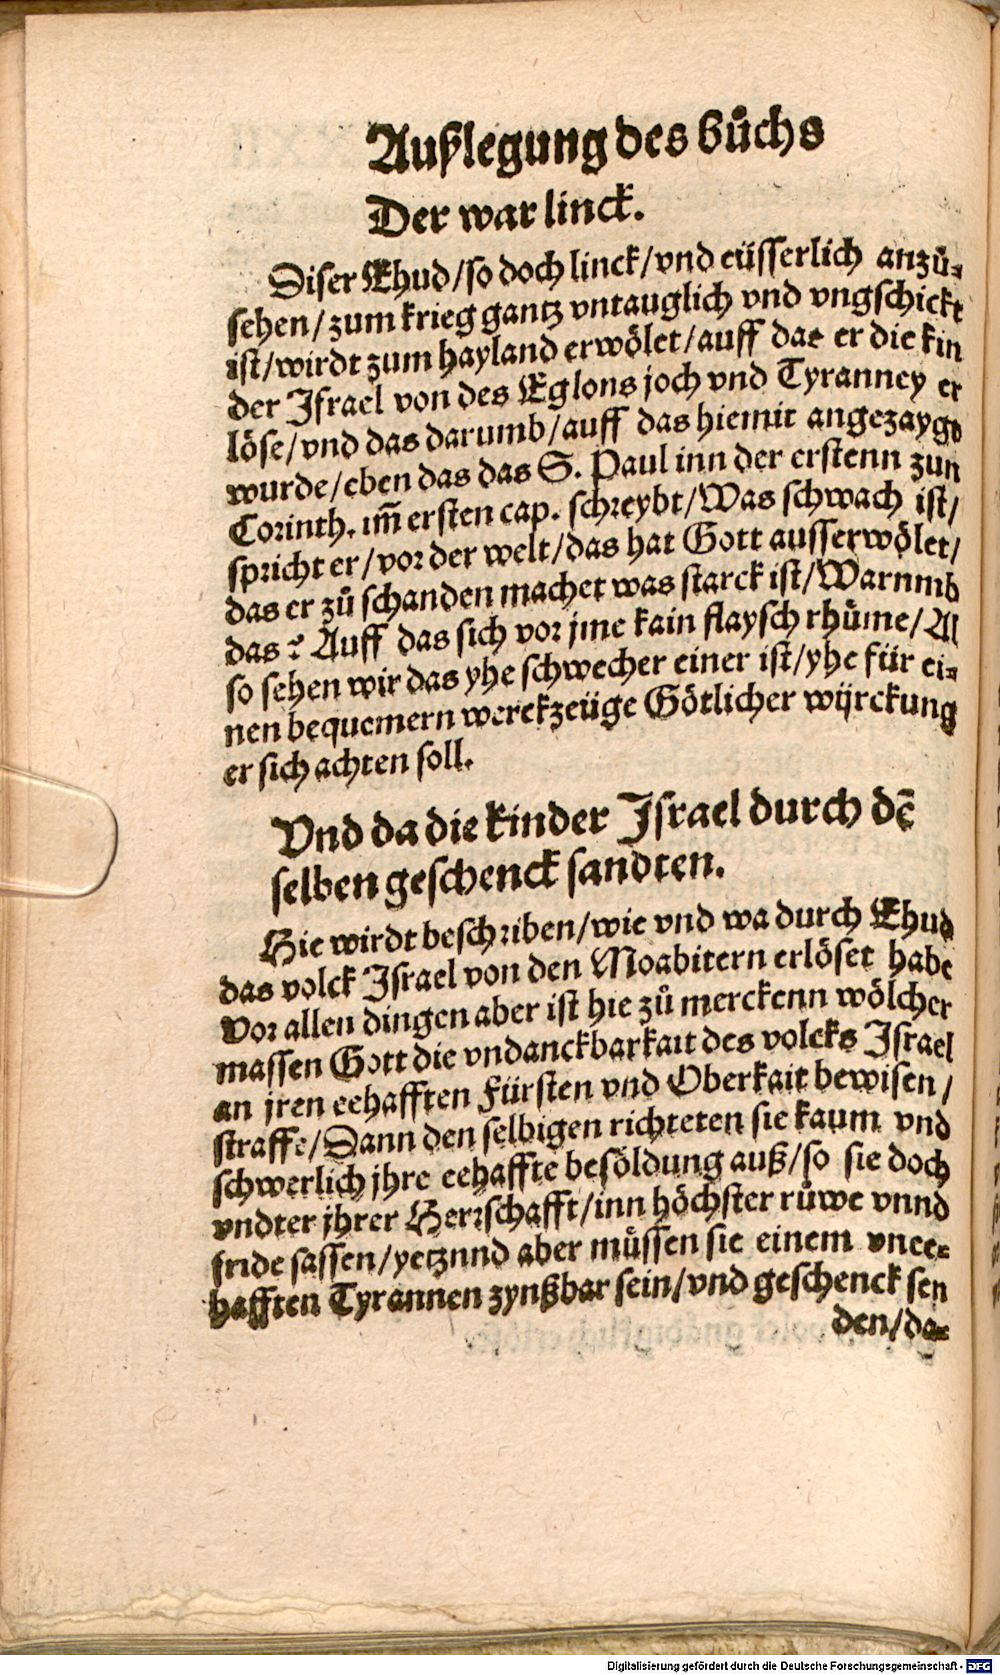 Außlegung des bůchs
Der war linck.
Diser Ehud/so doch linck/vnd eüsserlich anzů-
sehen/zum krieg gantz vntauglich vnd vngschickt
ist/wirdt zum hayland erwölet/auff das er die kin
der Israel von des Eglons joch vnd Tyranney er
löse/vnd das darumb/auff das hiemit angezaygt
wurde/eben das das S. Paul inn der erstenn zun
Corinth. im̃ ersten cap. schreybt/Was schwach ist/
spricht er/vor der welt/das hat Gott ausserwölet/
das er zů schanden machet was starck ist/Warnmb
das? Auff das sich vor jme kain flaysch rhůme/Al
so sehen wir das yhe schwecher einer ist/yhe für ei-
nen bequemern werckzeüge Götlicher würckung
er sich achten soll.
Vnd da die kinder Israel durch dẽ
selben geschenck sandten.
Hie wirdt beschriben/wie vnd wa durch Ehud
das volck Israel von den Moabitern erlöset habe
Vor allen dingen aber ist hie zů merckenn wölcher
massen Gott die vndanckbarkait des volcks Israel
an jren eehafften Fürsten vnd Oberkait bewisen/
straffe/Dann den selbigen richteten sie kaum vnd
schwerlich jhre eehaffte besöldung auß/so sie doch
vndter jhrer Herrschafft/inn höchster růwe vnnd
fride sassen/yetznnd aber müssen sie einem vnee-
hafften Tyrannen zynßbar sein/vnd geschenck sen
den/da-
Digitalisierung gefördert durch die Deutsche Forschungsgemeinschaft - DFG